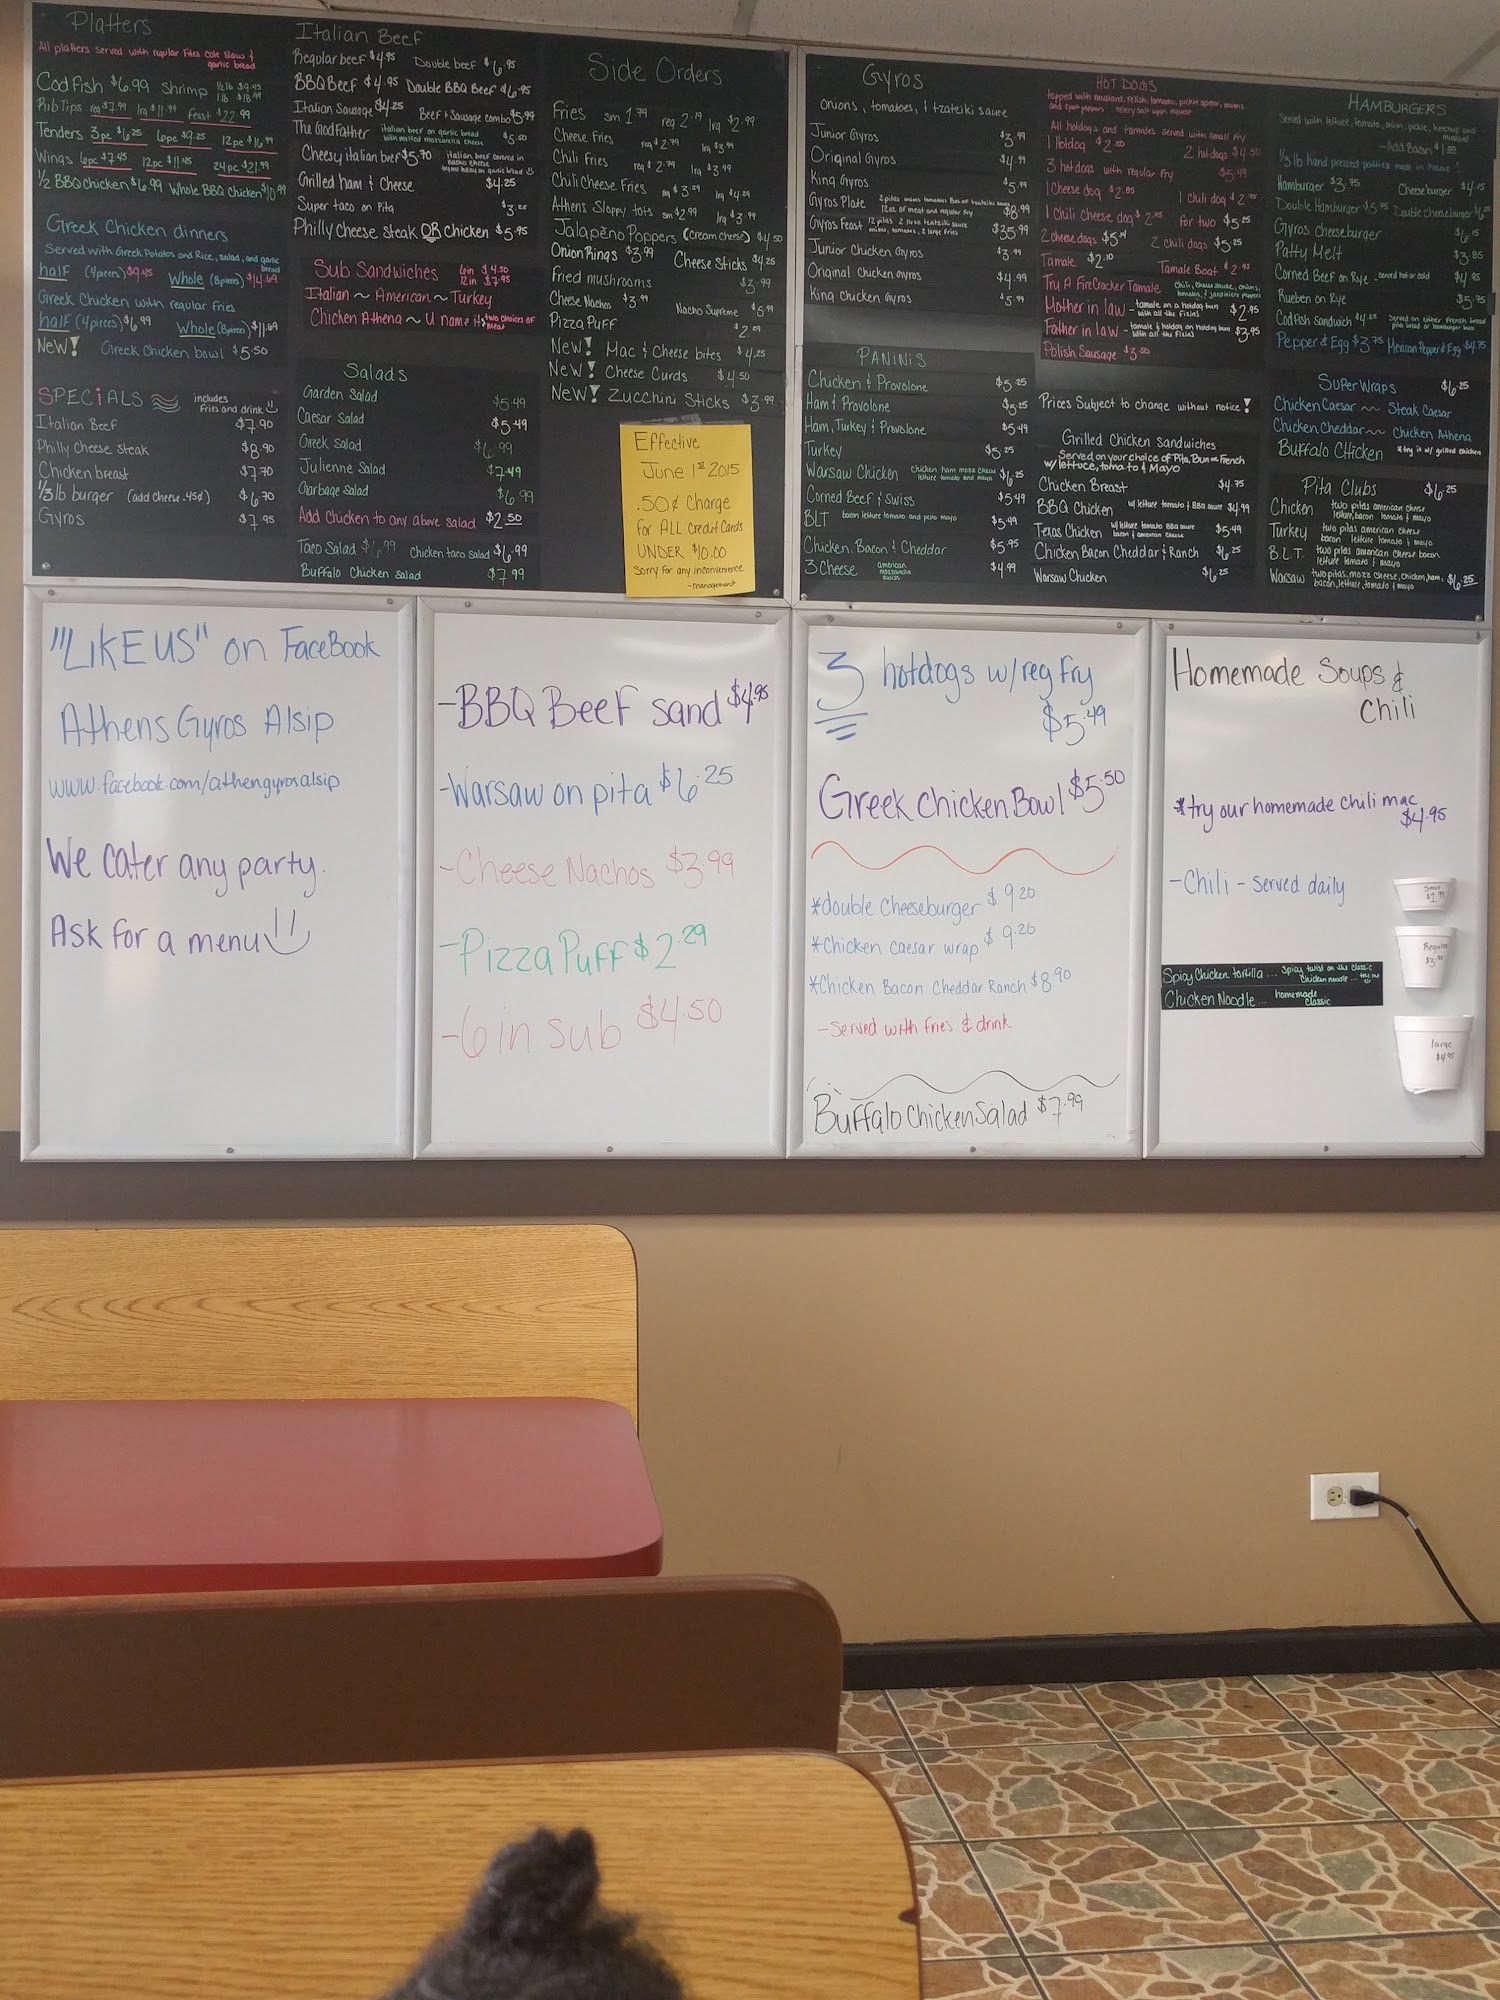 Platters
All platters served with regular Fries Cole slaw &
garlic bread
Cod Fish $6.99 Shrimp 1/2 lb $9.45
1 lb $18.99
Rib Tips reg $7.99 lrg $11.99 feast $22.99
Tenders 3pc $6.25 6pc $9.25 12pc $16.99
Wings 6pc $7.45 12pc $11.45 24pc $21.99
1/2 BBQ chicken $6.99 Whole BBQ Chicken $10.99
Greek Chicken dinners
Served with Greek Potatoes and Rice, salad, and garlic
bread
half (4pieces) $9.45 Whole (8pieces) $14.69
Greek Chicken with regular Fries
half (4pieces) $6.99 Whole (8pieces) $11.69
New! Greek Chicken bowl $5.50
SPECIALS includes
Fries and drink
Italian Beef $7.90
Philly Cheese steak $8.90
Chicken breast $7.70
1/3 lb burger (add cheese .45¢) $6.70
Gyros $7.95
Italian Beef
Regular beef $4.95 Double beef $6.95
BBQ Beef $4.95 Double BBQ Beef $6.95
Italian Sausage $4.25 Beef & Sausage combo $5.99
The GodFather italian beef on garlic bread
with melted mozzarella cheese $5.50
Cheesy italian beef $5.70 italian beef covered in
nacho cheese
Grilled ham & Cheese $4.25
Super taco on Pita
Philly Cheese Steak OR Chicken $5.95
Sub Sandwiches 6in $4.50
12in $7.95
Italian ~ American ~ Turkey
Chicken Athena ~ U name it two choices of
meat
Salads
Garden Salad $5.49
Caesar Salad $5.49
Greek Salad $6.99
Julienne Salad $7.49
Garbage Salad $6.99
Add Chicken to any above salad $2.50
Taco Salad $6.99 Chicken taco salad $6.99
Buffalo Chicken salad $7.99
Side Orders
Fries sm 1.79 reg 2.19 lrg $2.99
Cheese Fries reg $2.79 lrg $3.99
Chili Fries reg $2.79 lrg $3.99
Chili Cheese Fries reg $3.29 lrg $4.29
Athens Sloppy tots sm $2.99 lrg $3.99
Jalapeño Poppers (cream cheese) $4.50
Onion Rings $3.99 Cheese Sticks $4.25
Fried mushrooms $3.99
Cheese Nachos $3.99 Nacho Supreme $5.99
Pizza Puff
New! Mac & Cheese bites $4.25
New! Cheese Curds $4.50
New! Zucchini Sticks $3.99
Effective
June 1st 2015
.50¢ Charge
For ALL Credit Cards
UNDER $10.00
Sorry for any inconvenience
~management
Gyros
onions, tomatoes, & tzatziki sauce
Junior Gyros $3.99
Original Gyros $4.99
King Gyros $5.99
Gyros Plate $8.99
12oz of meat and regular fry
Gyros Feast $35.99
onions, tomatoes, 2 large fries
Junior Chicken Gyros $3.99
Original Chicken Gyros $4.99
King Chicken Gyros $5.99
PANINIS
Chicken & Provolone $5.25
Ham & Provolone $5.25
Ham, Turkey & Provolone $5.49
Turkey $5.25
Warsaw Chicken chicken ham mozz cheese
lettuce tomato and mayo $6.25
Corned Beef & Swiss $5.49
BLT bacon lettuce tomato and pesto mayo $5.99
Chicken, Bacon & Cheddar $5.95
3 Cheese american
mozzarella
swiss $4.99
HOT DOGS
topped with mustard, relish, tomato, pickle spear, onions
and sport peppers celery salt upon request
All hotdogs and tamales served with small fry
1 Hotdog $2.50 2 hot dogs $4.50
3 hotdogs with regular fry $5.49
1 Cheese dog $2.85 1 chili dog
1 Chili cheese dog For two $5.25
2 cheese dogs 2 chili dogs $5.25
Tamale $2.10 Tamale Boat $2.95
Try A FireCracker Tamale chili, cheese sauce, onions,
tomatoes, & jardiniere peppers
Mother in law - tamale on a hotdog bun
with all the fixins $2.95
Father in law - tamale & hotdog on hotdog bun
with all the fixins $3.95
Polish Sausage $3.50
Prices Subject to change without notice!
Grilled Chicken Sandwiches
Served on your choice of Pita, Bun or French
w/ lettuce, tomato & Mayo
Chicken Breast $4.75
BBQ Chicken w/ lettuce tomato & BBQ sauce $4.99
Texas Chicken w/ lettuce tomato BBQ sauce
bacon & american cheese $5.49
Chicken Bacon Cheddar & Ranch $6.25
Warsaw Chicken $6.25
HAMBURGERS
Served with lettuce, tomato, onion, pickle, ketchup and
mustard
~Add Bacon $1.00
1/3 lb hand pressed patties made in house!
Hamburger $3.75 Cheeseburger $4.15
Double Hamburger $5.75 Double cheeseburger $6.25
Gyros cheeseburger $6.15
Patty Melt $3.85
Corned Beef on Rye - served hot or cold $4.95
Rueben on Rye $5.75
Codfish Sandwich Served on either French bread
pita bread or hamburger bun
Pepper & Egg $3.75 Mexican Pepper & Egg $4.75
Super Wraps $6.25
Chicken Caesar ~~ Steak Caesar
Chicken Cheddar ~~ Chicken Athena
Buffalo Chicken *try it w/ grilled chicken
Pita Clubs $6.25
Chicken two pitas american cheese
lettuce, bacon tomato & mayo
Turkey two pitas american cheese
bacon lettuce tomato & mayo
B.L.T. two pitas american cheese bacon
lettuce tomato & mayo
Warsaw two pitas, mozz cheese, chicken, ham,
bacon, lettuce, tomato & mayo $6.25
"LIKE US" on FaceBook
Athens Gyros Alsip
www.facebook.com/athengyrosalsip
We cater any party.
Ask for a menu
-BBQ Beef sand $4.95
-Warsaw on pita $6.25
-Cheese Nachos $3.99
-Pizza Puff $2.29
-6 in sub $4.50
3 hotdogs w/ reg fry
$5.49
Greek Chicken Bowl $5.50
*double Cheeseburger $9.20
*Chicken Caesar wrap $9.20
*Chicken Bacon Cheddar Ranch $8.90
-Served with Fries & drink
Buffalo Chicken Salad $7.99
Homemade Soups &
Chili
*try our homemade chili mac
$4.95
-Chili - served daily
Spicy Chicken tortilla... Spicy twist on the classic
Chicken noodle...
Chicken Noodle... homemade
classic
Small
$1.99
Regular
large
$4.95